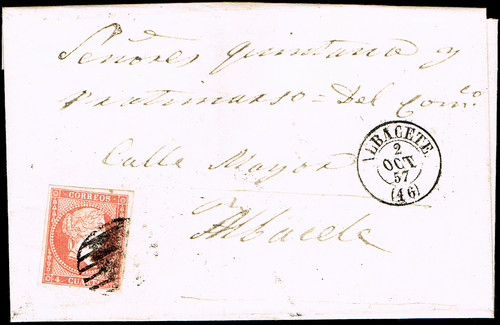 Señores quintana y
= Del Com.º
Calle Mayor
Albacete
ALBACETE
2
OCT
57
(46)
CORREOS
4 CUARTOS